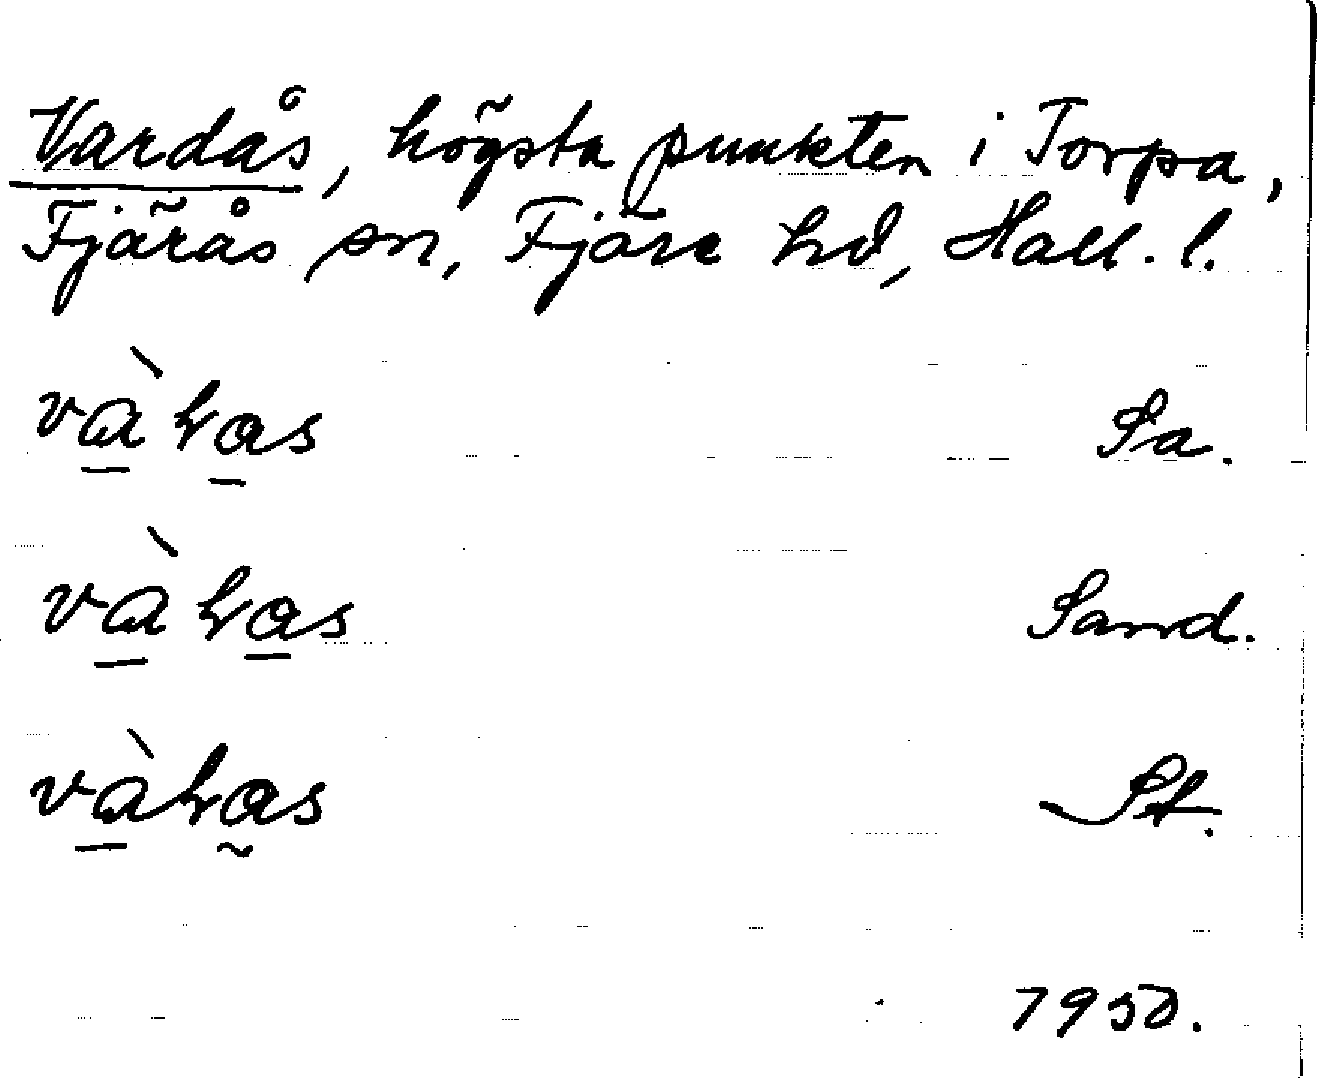 Vardås, högsta punkten i Torpa,
Fjärås sn, Fjäre hd, Hall. l.
Sa.
Sand.
St.
1950.